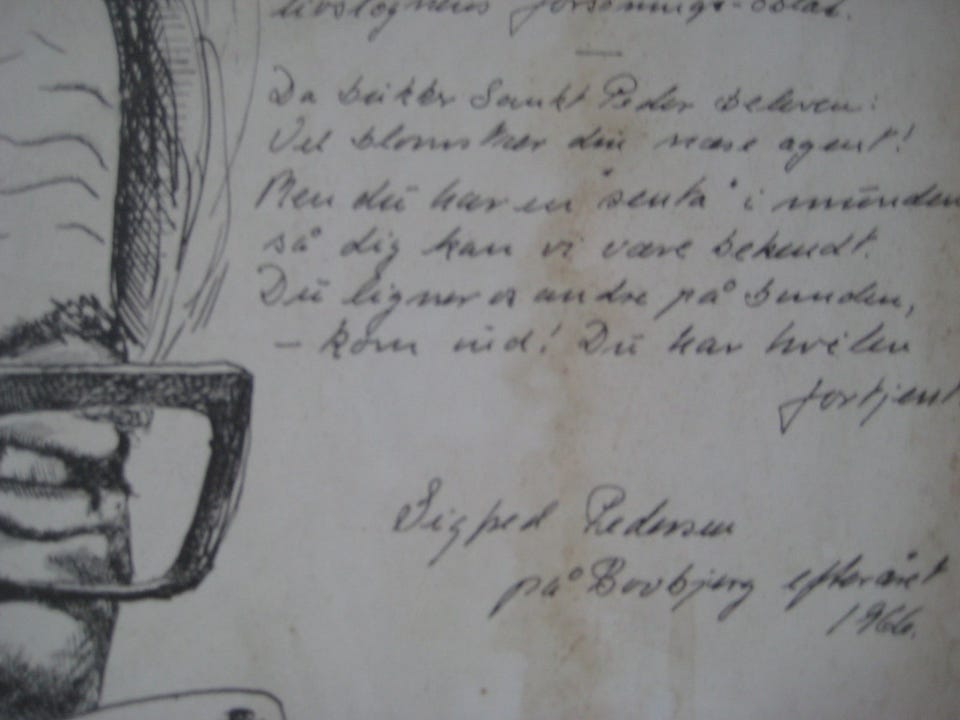 livsløgnens forsonings-oblat.
Da bukker Sankt Peder beleven:
Vel blomstrer din næse agent!
Men du har en "senta" i munden
så dig kan vi være bekendt.
Du ligner os andre på bunden,
– kom ind! Du har hvilen
fortjent
Sigfred Pedersen
på Bovbjerg efteråret
1966.